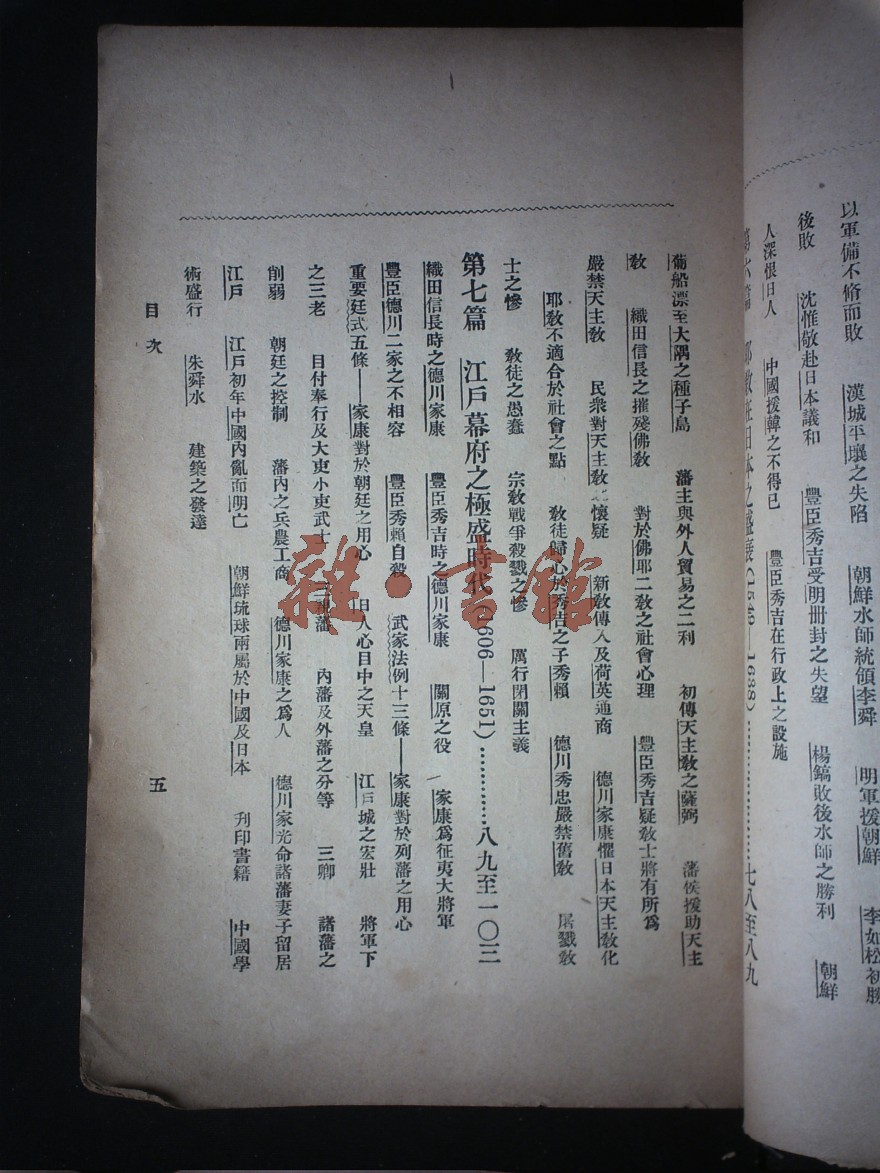 以軍備不脩而敗　漢城平壤之失陷　朝鮮水師統領李舜　明軍援朝鮮　李如松初勝
後敗　沈惟敬赴日本議和　豐臣秀吉受明冊封之失望　楊鎬敗後水師之勝利　朝鮮
人深恨日人　中國援韓之不得已　豐臣秀吉在行政上之設施
第六篇　耶教在日本之盛衰(1549—1638)……………………七八至八九
葡船漂至大隅之種子島　藩主與外人貿易之二利　初傳天主教之薩弼　藩侯援助天主
教　織田信長之摧殘佛教　對於佛耶二教之社會心理　豐臣秀吉疑教士將有所爲
嚴禁天主教　民衆對天主教之懷疑　新教傳入及荷英通商　德川家康懼日本天主教化
耶教不適合於社會之點　教徒歸心於秀吉之子秀賴　德川秀忠嚴禁舊教　屠戮教
士之慘　教徒之愚蠢　宗教戰爭殺戮之慘　厲行閉關主義
第七篇　江戶幕府之極盛時代(1606—1651)……………八九至一〇三
織田信長時之德川家康　豐臣秀吉時之德川家康　關原之役　家康爲征夷大將軍
豐臣德川二家之不相容　豐臣秀賴自殺　武家法例十三條——家康對於列藩之用心
重要廷式五條——家康對於朝廷之用心　日人心目中之天皇　江戶城之宏壯　將軍下
之三老　目付奉行及大吏小吏武士　藩　內藩及外藩之分等　三卿　諸藩之
削弱　朝廷之控制　藩內之兵農工商　德川家康之爲人　德川家光命諸藩妻子留居
江戶　江戶初年中國內亂而明亡　朝鮮琉球兩屬於中國及日本　刋印書籍　中國學
術盛行　朱舜水　建築之發達
目次
五
雜·書館